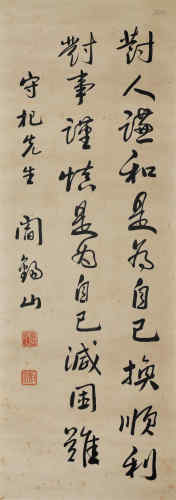 對人謙和是為自己換順利
對事謹慎是为自己減困難
守杞先生
閻錫山